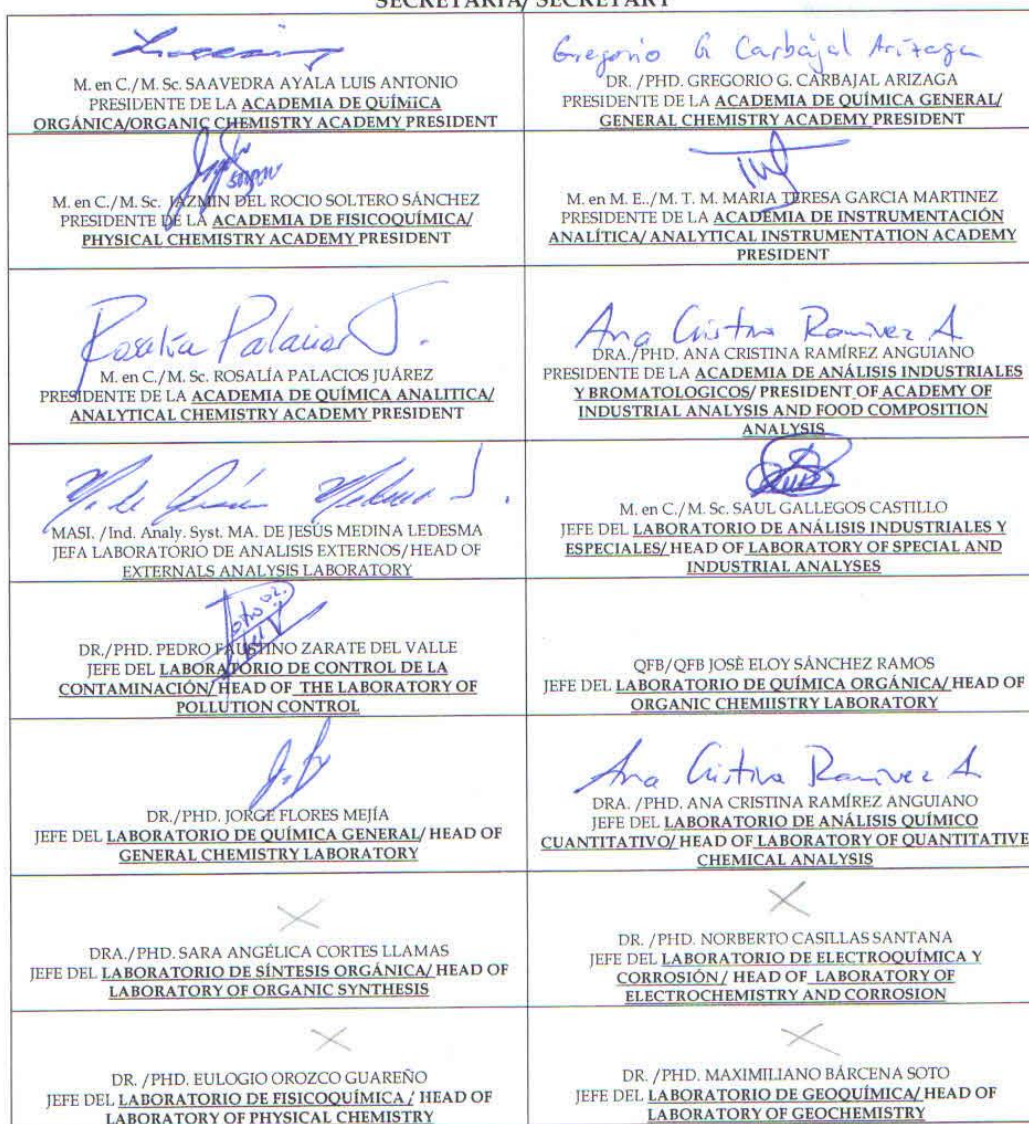 SECRETARIA/ SECRETARY
M. en C./M. Sc. SAAVEDRA AYALA LUIS ANTONIO
PRESIDENTE DE LA ACADEMIA DE QUÍMiICA
ORGÁNICA/ORGANIC CHEMISTRY ACADEMY PRESIDENT
Gregorio G Carbajal Arízaga
DR. /PHD. GREGORIO G. CARBAJAL ARIZAGA
PRESIDENTE DE LA ACADEMIA DE QUÍMICA GENERAL/
GENERAL CHEMISTRY ACADEMY PRESIDENT
M. en C./M. Sc. JAZMIN DEL ROCIO SOLTERO SÁNCHEZ
PRESIDENTE DE LA ACADEMIA DE FISICOQUÍMICA/
PHYSICAL CHEMISTRY ACADEMY PRESIDENT
M. en M. E./M. T. M. MARIA TERESA GARCIA MARTINEZ
PRESIDENTE DE LA ACADEMIA DE INSTRUMENTACIÓN
ANALÍTICA/ ANALYTICAL INSTRUMENTATION ACADEMY
PRESIDENT
Rosalía Palacios J.
M. en C./M. Sc. ROSALÍA PALACIOS JUÁREZ
PRESIDENTE DE LA ACADEMIA DE QUÍMICA ANALITICA/
ANALYTICAL CHEMISTRY ACADEMY PRESIDENT
Ana Cristina Ramírez A
DRA./PHD. ANA CRISTINA RAMÍREZ ANGUIANO
PRESIDENTE DE LA ACADEMIA DE ANÁLISIS INDUSTRIALES
Y BROMATOLOGICOS/ PRESIDENT OF ACADEMY OF
INDUSTRIAL ANALYSIS AND FOOD COMPOSITION
ANALYSIS
MASI. /Ind. Analy. Syst. MA. DE JESÚS MEDINA LEDESMA
JEFA LABORATORIO DE ANALISIS EXTERNOS/HEAD OF
EXTERNALS ANALYSIS LABORATORY
M. en C./M. Sc. SAUL GALLEGOS CASTILLO
JEFE DEL LABORATORIO DE ANÁLISIS INDUSTRIALES Y
ESPECIALES/ HEAD OF LABORATORY OF SPECIAL AND
INDUSTRIAL ANALYSES
DR./PHD. PEDRO FAUSTINO ZARATE DEL VALLE
JEFE DEL LABORATORIO DE CONTROL DE LA
CONTAMINACIÓN/ HEAD OF THE LABORATORY OF
POLLUTION CONTROL
QFB/QFB JOSÈ ELOY SÁNCHEZ RAMOS
JEFE DEL LABORATORIO DE QUÍMICA ORGÁNICA/ HEAD OF
ORGANIC CHEMIISTRY LABORATORY
DR./PHD. JORGE FLORES MEJÍA
JEFE DEL LABORATORIO DE QUÍMICA GENERAL/ HEAD OF
GENERAL CHEMISTRY LABORATORY
Ana Cristina Ramírez A
DRA. /PHD. ANA CRISTINA RAMÍREZ ANGUIANO
JEFE DEL LABORATORIO DE ANÁLISIS QUÍMICO
CUANTITATIVO/ HEAD OF LABORATORY OF QUANTITATIVE
CHEMICAL ANALYSIS
DRA./PHD. SARA ANGÉLICA CORTES LLAMAS
JEFE DEL LABORATORIO DE SÍNTESIS ORGÁNICA/ HEAD OF
LABORATORY OF ORGANIC SYNTHESIS
DR. /PHD. NORBERTO CASILLAS SANTANA
JEFE DEL LABORATORIO DE ELECTROQUÍMICA Y
CORROSIÓN / HEAD OF LABORATORY OF
ELECTROCHEMISTRY AND CORROSION
DR. /PHD. EULOGIO OROZCO GUAREÑO
JEFE DEL LABORATORIO DE FISICOQUÍMICA / HEAD OF
LABORATORY OF PHYSICAL CHEMISTRY
DR. /PHD. MAXIMILIANO BÁRCENA SOTO
JEFE DEL LABORATORIO DE GEOQUÍMICA/ HEAD OF
LABORATORY OF GEOCHEMISTRY